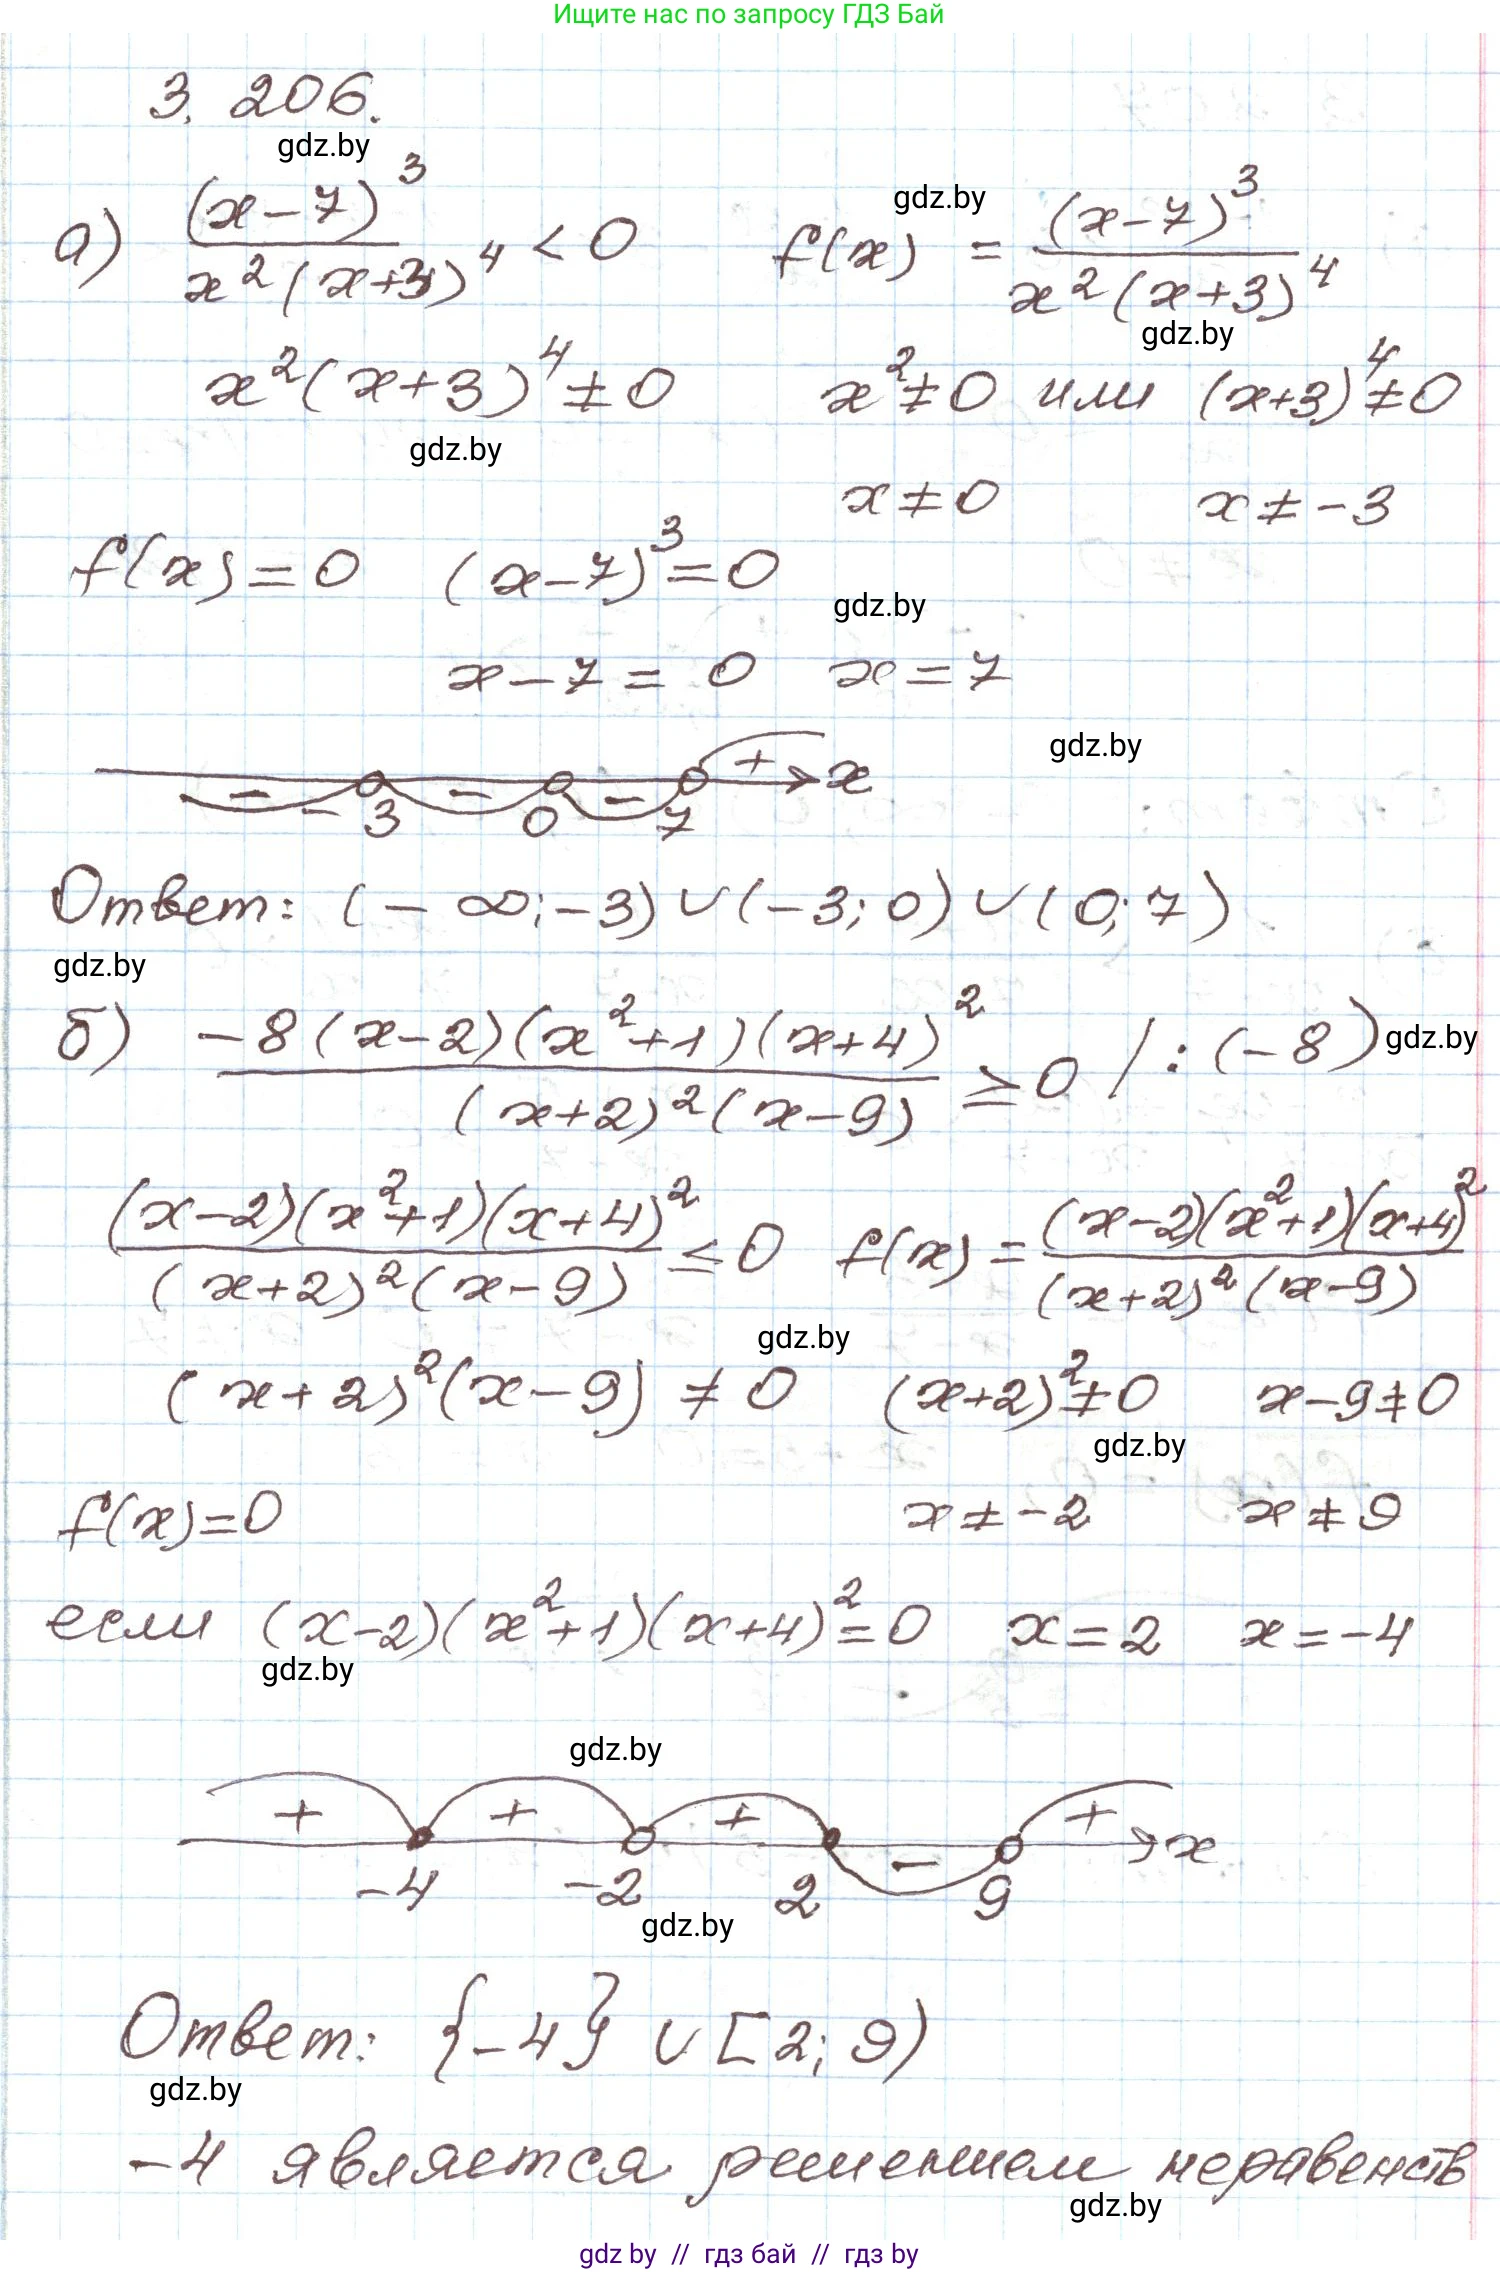 Ищите нас по запросу ГДЗ Бай
3. 206.
gdz.by
а) (x-7)^3 / x^2(x+3)^4 < 0   f(x) = (x-7)^3 / x^2(x+3)^4
gdz.by
gdz.by
x^2(x+3)^4 ≠ 0   x^2 ≠ 0 или (x+3)^4 ≠ 0
gdz.by
x ≠ 0   x ≠ -3
f(x) = 0   (x-7)^3 = 0
gdz.by
x - 7 = 0   x = 7
gdz.by
- - - + x
-3 0 7
Ответ: (-∞; -3) ∪ (-3; 0) ∪ (0; 7)
gdz.by
б) -8(x-2)(x^2+1)(x+4)^2 / (x+2)^2(x-9) ≥ 0 / : (-8)
gdz.by
(x-2)(x^2+1)(x+4)^2 / (x+2)^2(x-9) ≤ 0   f(x) = (x-2)(x^2+1)(x+4)^2 / (x+2)^2(x-9)
gdz.by
(x+2)^2(x-9) ≠ 0   (x+2)^2 ≠ 0   x-9 ≠ 0
gdz.by
f(x) = 0   x ≠ -2   x ≠ 9
если (x-2)(x^2+1)(x+4)^2 = 0   x = 2   x = -4
gdz.by
gdz.by
+ + + - + x
-4 -2 2 9
gdz.by
Ответ: {-4} ∪ [2; 9)
gdz.by
-4 является решением неравенств
gdz.by
gdz by // гдз бай // гдз by